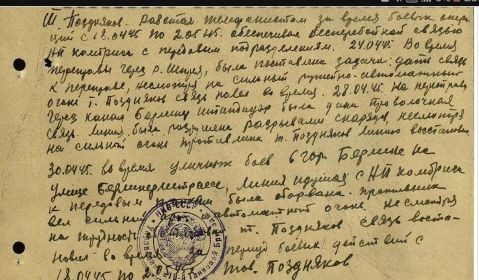 Т. Поздняков. работая телефонистом за время боевых опера-
ций с 18.04.45 по 2.05.45. обеспечивал бесперебойной связью
НП комбрига с передовым подразделением. 24.04.45. Во время
переправы через р. Шпрея, была поставлена задача: дать связь
к переправе, несмотря на сильный ружейно-автоматный
огонь т. Поздняков связь навел во время. 28.04.45. на переправе
через канал Берлинер была дана проволочная
связь. линия была разрушена разрывами снаряда, несмотря
на сильный огонь противника т. Поздняков линию восстанови
30.04.45. во время уличных боев в гор. Берлине на
улице линия идущая с НП комбрига
к передовым была оборвана. противник
вел сильный автоматный огонь, несмотря
на трудность т. Поздняков связь восста-
новил во время. период боевых действий с
18.04.45 по 2.05.45 тов. Поздняков